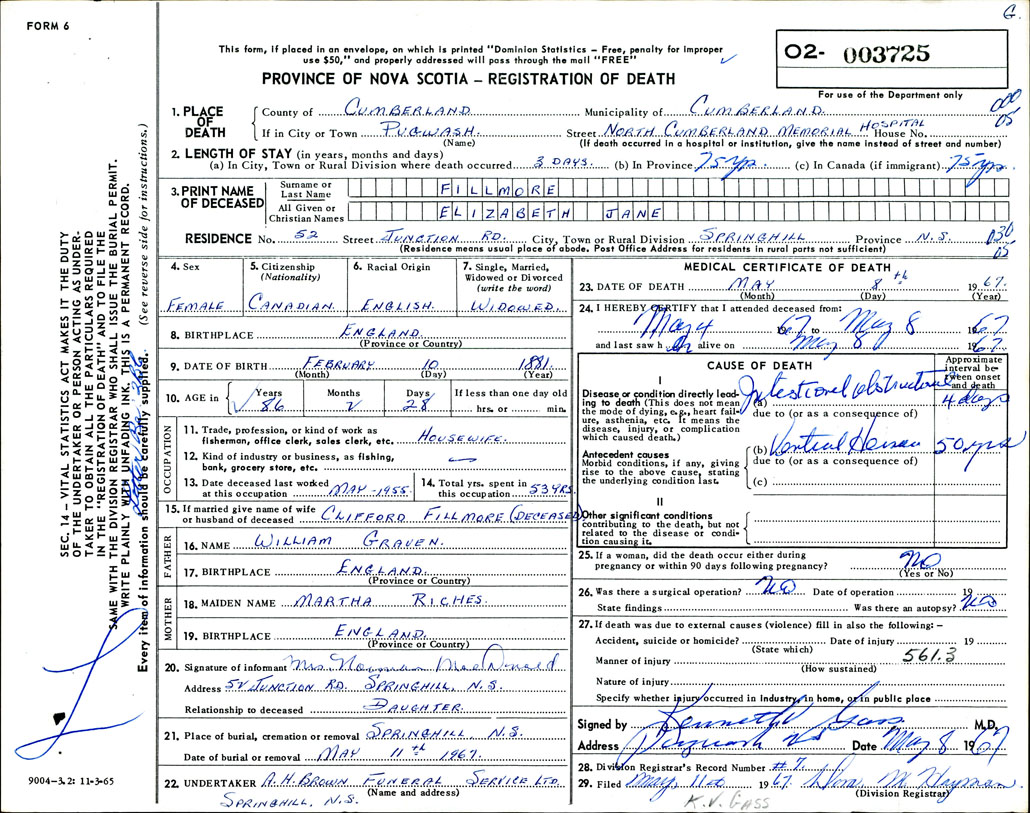 G.
FORM 6
This form, if placed in an envelope, on which is printed "Dominion Statistics – Free, penalty for improper
use $50," and properly addressed will pass through the mail "FREE"
PROVINCE OF NOVA SCOTIA – REGISTRATION OF DEATH
O2- 003725
For use of the Department only
000
05
1. PLACE OF DEATH
County of CUMBERLAND Municipality of CUMBERLAND.
If in City or Town PUGWASH. Street NORTH CUMBERLAND MEMORIAL HOSPITAL House No.
(Name) (If death occurred in a hospital or institution, give the name instead of street and number)
2. LENGTH OF STAY (in years, months and days)
(a) In City, Town or Rural Division where death occurred 3 DAYS. (b) In Province 75 yrs. (c) In Canada (if immigrant) 75 yrs
3. PRINT NAME OF DECEASED
Surname or Last Name FILLMORE
All Given or Christian Names ELIZABETH JANE
RESIDENCE No. 52 Street JUNCTION RD. City, Town or Rural Division SPRINGHILL Province N.S.
030
05
(Residence means usual place of abode. Post Office Address for residents in rural ports not sufficient)
4. Sex
FEMALE
5. Citizenship (Nationality)
CANADIAN.
6. Racial Origin
ENGLISH.
7. Single, Married, Widowed or Divorced (write the word)
WIDOWED.
8. BIRTHPLACE ENGLAND
(Province or Country)
9. DATE OF BIRTH FEBRUARY 10 1881.
(Month) (Day) (Year)
10. AGE in Years 86 Months 2 Days 28 If less than one day old
hrs. or min.
OCCUPATION
11. Trade, profession, or kind of work as
fisherman, office clerk, sales clerk, etc. HOUSEWIFE.
12. Kind of industry or business, as fishing,
bank, grocery store, etc.
13. Date deceased last worked
at this occupation MAY - 1955
14. Total yrs. spent in
this occupation 53 YRS.
15. If married give name of wife
or husband of deceased CLIFFORD FILLMORE (DECEASED)
FATHER
16. NAME WILLIAM GRAVEN.
17. BIRTHPLACE ENGLAND
(Province or Country)
MOTHER
18. MAIDEN NAME MARTHA RICHES.
19. BIRTHPLACE ENGLAND.
(Province or Country)
20. Signature of informant Mrs Norman MacDonald
Address 52 JUNCTION RD. SPRINGHILL, N.S.
Relationship to deceased DAUGHTER.
21. Place of burial, cremation or removal SPRINGHILL, N.S.
Date of burial or removal MAY 11th 1967.
22. UNDERTAKER A.H. BROWN FUNERAL SERVICE LTD.
(Name and address)
SPRINGHILL, N.S.
MEDICAL CERTIFICATE OF DEATH
23. DATE OF DEATH MAY 8th 1967.
(Month) (Day) (Year)
24. I HEREBY CERTIFY that I attended deceased from:
May 4 1967 to May 8 1967
and last saw her alive on May 8 1967.
CAUSE OF DEATH
Approximate interval between onset and death
I
Disease or condition directly leading to death (This does not mean
the mode of dying, e.g., heart failure, asthenia, etc. It means the
disease, injury, or complication
which caused death.)
(a) Intestional obstructions 4 days
due to (or as a consequence of)
Antecedent causes
Morbid conditions, if any, giving
rise to the above cause, stating
the underlying condition last.
(b) Ventral Hernia 50 yrs
due to (or as a consequence of)
(c)
II
Other significant conditions
contributing to the death, but not
related to the disease or condition causing it.
25. If a woman, did the death occur either during
pregnancy or within 90 days following pregnancy? NO
(Yes or No)
26. Was there a surgical operation? NO Date of operation 19
State findings Was there an autopsy? NO
27. If death was due to external causes (violence) fill in also the following: –
Accident, suicide or homicide? Date of injury 19
(State which)
Manner of injury 561.3
(How sustained)
Nature of injury
Specify whether injury occurred in Industry, in home, or in public place
Signed by Kenneth V Gass M.D.
Address Pugwash NS Date May 8 1967
28. Division Registrar's Record Number #7.
29. Filed May 11th 1967. M. Hyman
(Division Registrar)
K.V. GASS
SEC. 14 – VITAL STATISTICS ACT MAKES IT THE DUTY
OF THE UNDERTAKER OR PERSON ACTING AS UNDERTAKER TO OBTAIN ALL THE PARTICULARS REQUIRED
IN THE "REGISTRATION OF DEATH" AND TO FILE THE
SAME WITH THE DIVISION REGISTRAR WHO SHALL ISSUE THE BURIAL PERMIT.
WRITE PLAINLY WITH UNFADING INK. THIS IS A PERMANENT RECORD.
Every item of information should be carefully supplied. (See reverse side for instructions.)
9004–3.2: 11-3-65